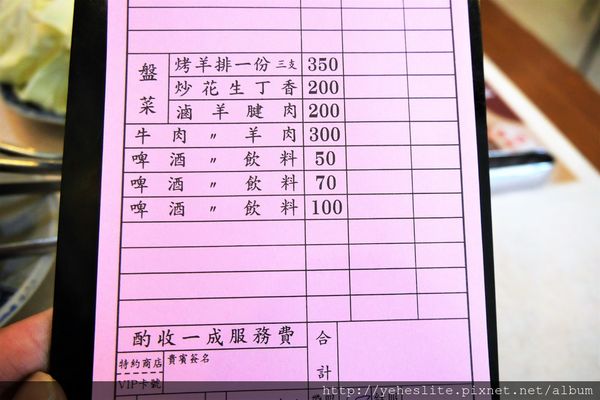 盤菜
烤羊排一份 三支 350
炒花生丁香 200
滷羊腱肉 200
牛肉〃羊肉 300
啤酒〃飲料 50
啤酒〃飲料 70
啤酒〃飲料 100
酌收一成服務費
合計
特約商店
VIP卡號
貴賓簽名
http://yeheslite.pixnet.net/album